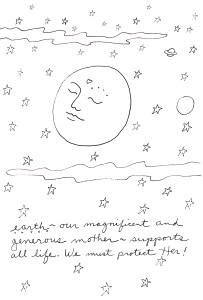 earth ~ our magnificent and
generous mother ~ supports
all life. We must protect Her!